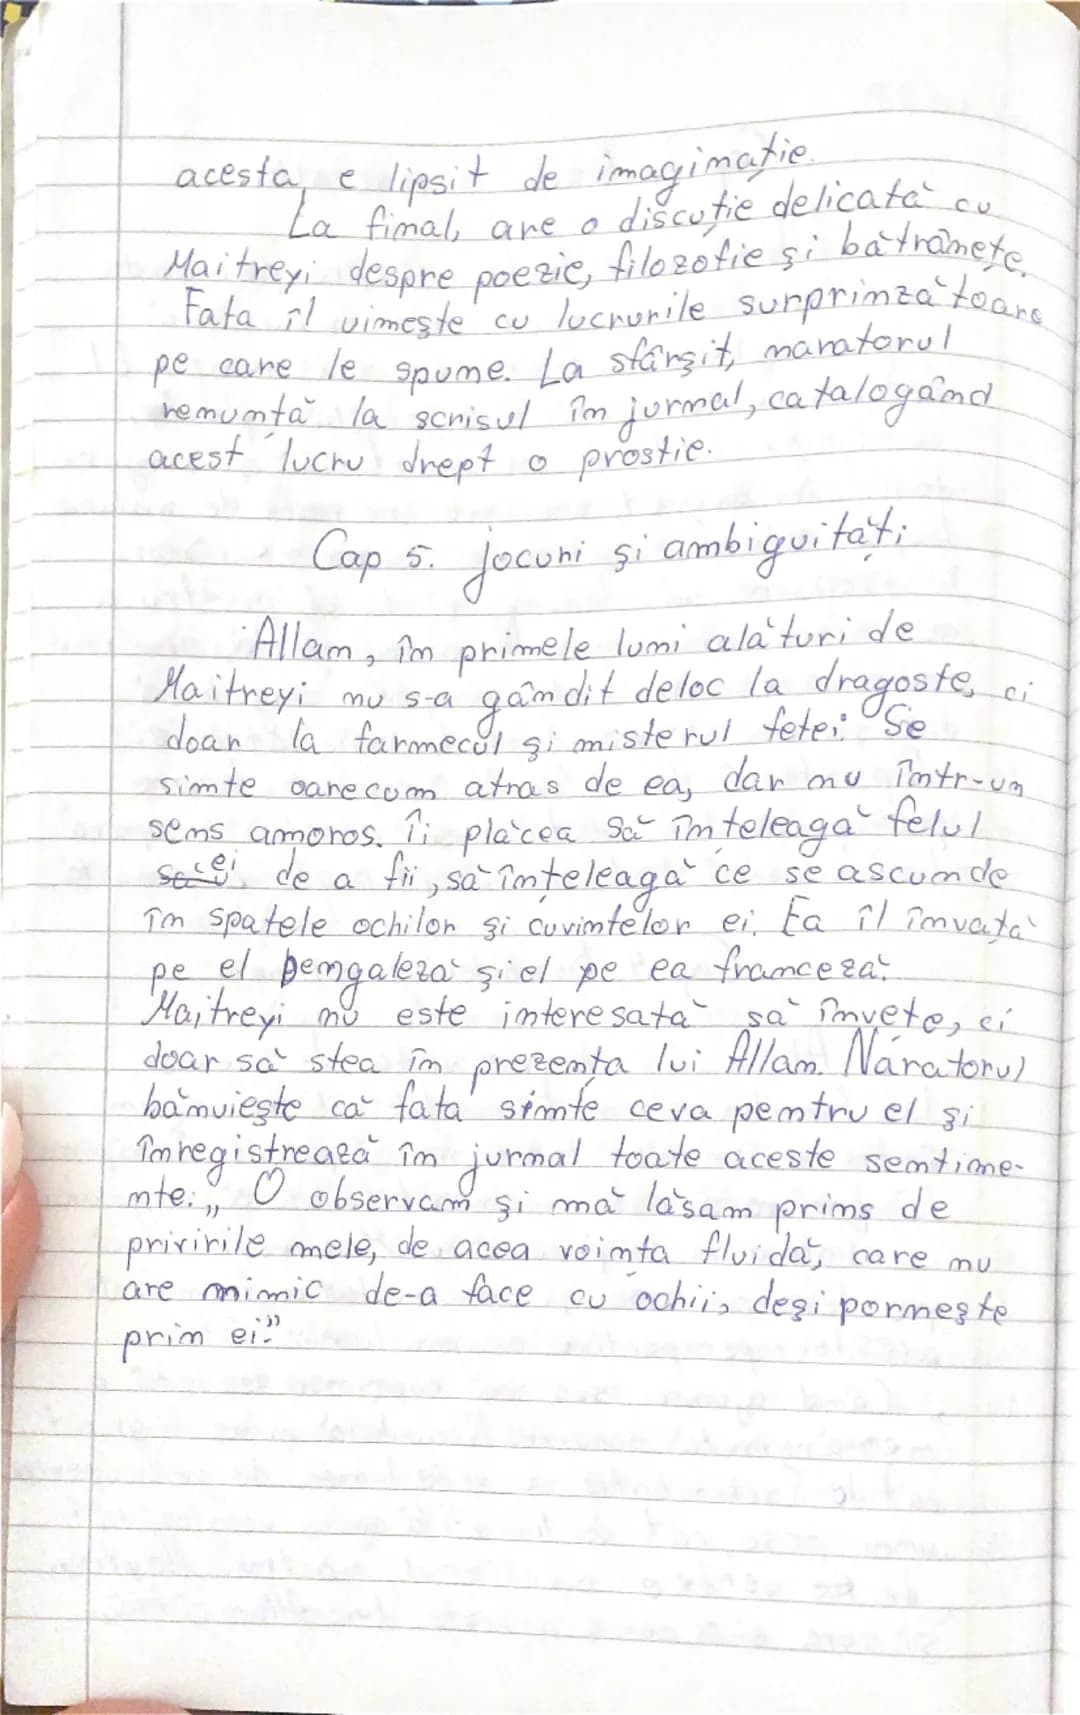 acesta, e lipsit de imaginație.
La final, are o discuție delicată cu
Maitreyi despre poezie, filozofie și bătrânețe.
Fata îl uimește cu lucrurile surprinzătoare
pe care le spune. La sfârșit, naratorul
renunță la scrisul în jurnal, catalogând
acest lucru drept o prostie.
Cap 5. Jocuri și ambiguități
Allan, în primele luni alături de
Maitreyi nu s-a gândit deloc la dragoste, ci
doar la farmecul și misterul fetei. Se
simte oarecum atras de ea, dar nu într-un
sens amoros. Îi plăcea să înțeleagă felul
ei de a fii, să înțeleagă ce se ascunde
în spatele ochilor și cuvintelor ei. Ea îl învață
pe el bengaleză și el pe ea franceză.
Maitreyi nu este interesată să învețe, ci
doar să stea în prezența lui Allan. Naratorul
bănuiește că fata simte ceva pentru el și
înregistrează în jurnal toate aceste sentime-
nte: „O observam și mă lăsam prins de
privirile mele, de acea voința fluidă, care nu
are nimic de-a face cu ochii, deși pornește
prin ei."